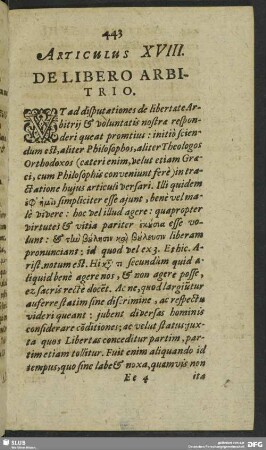 443
ARTICULUS XVIII.
DE LIBERO ARBI-
TRIO.
VT ad disputationes de libertate Ar-
bitrij & voluntatis nostræ respon-
deri queat promtius: initiò scien-
dum est, aliter Philosophos, aliter Theologos
Orthodoxos (cateri enim, velut etiam Græ-
ci, cum Philosophis conveniunt ferè) in tra-
ctatione hujus articuli versari. Illi quidem
ἐφ' ἡμῖν simpliciter esse ajunt, benè vel ma-
lè vivere: hoc vel illud agere: quapropter
virtutes & vitia pariter ἑκούσια esse vo-
lunt: & τὴν βούλησιν καὶ βούλευσιν liberam
pronunciant; id quod vel ex 3. Ethic. A-
rist. notum est. Hi secundum quid a-
liquid benè agere nos, & non agere posse,
ex sacris rectè docēt. Ac ne, quod largiūtur
auferre statim sine discrimine, ac respectu
videri queant: jubent diversas hominis
considerare cōditiones; ac velut status: jux-
ta quos Libertas conceditur partim, par-
tim etiam tollitur. Fuit enim aliquando id
tempus, quo sine labe & noxa, quamvis non
Ee 4 ita
SLUB